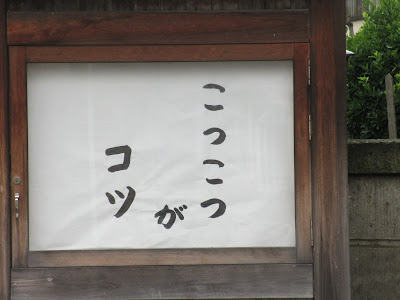 こつこつ
が
コツ